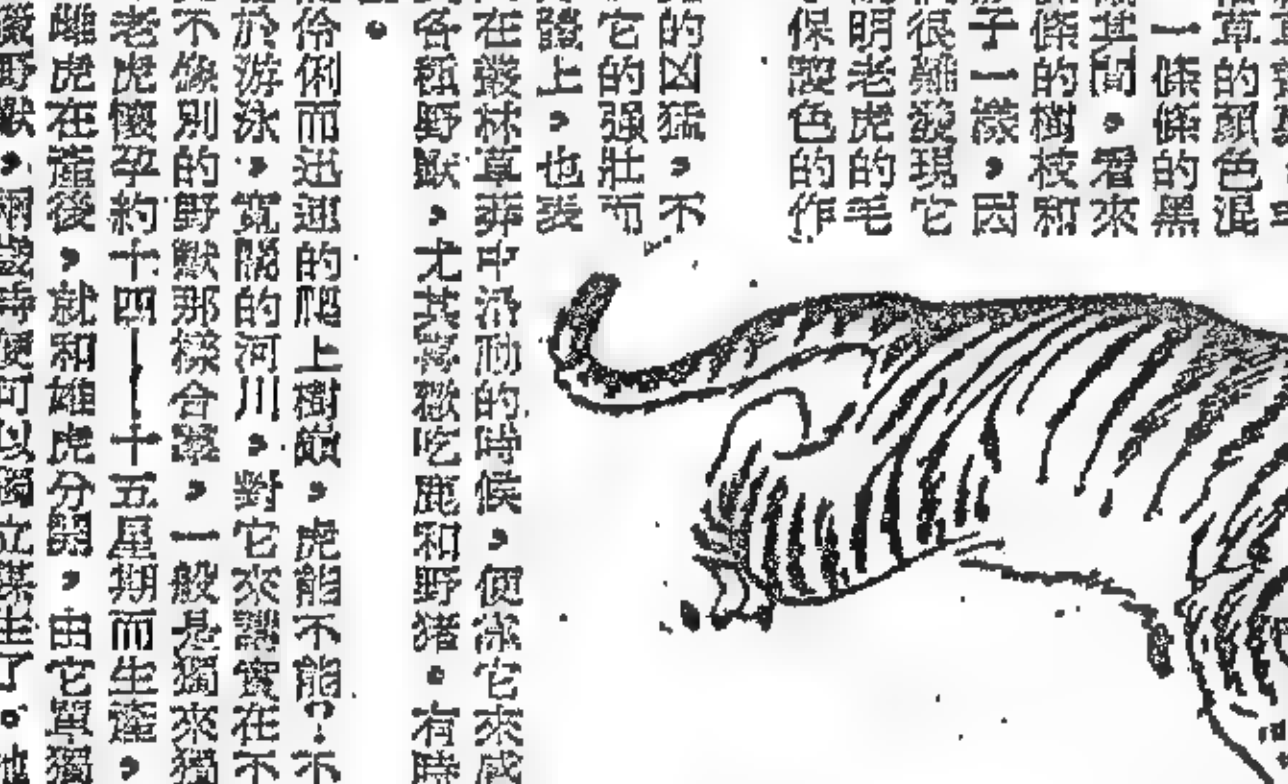 草的顏色混
一條條的黑
其間，看來
條的樹枝和
子一樣，因
很難發現它
明老虎的毛
保護色的作
的凶猛，不
它的强壯而
體上，也表
在叢林草莽中活動的時候，便靠它來
各種野獸，尤其喜歡吃鹿和野猪。有時
伶俐而迅速的爬上樹巔，虎能不能？不
於游泳，寬闊的河川，對它來講實在不
不像別的野獸那樣合羣，一般是獨來獨
老虎懷孕約十四——十五星期而生產，
雌虎在產後，就和雄虎分開，由它單獨
野獸，兩歲時便可以獨立謀生了。